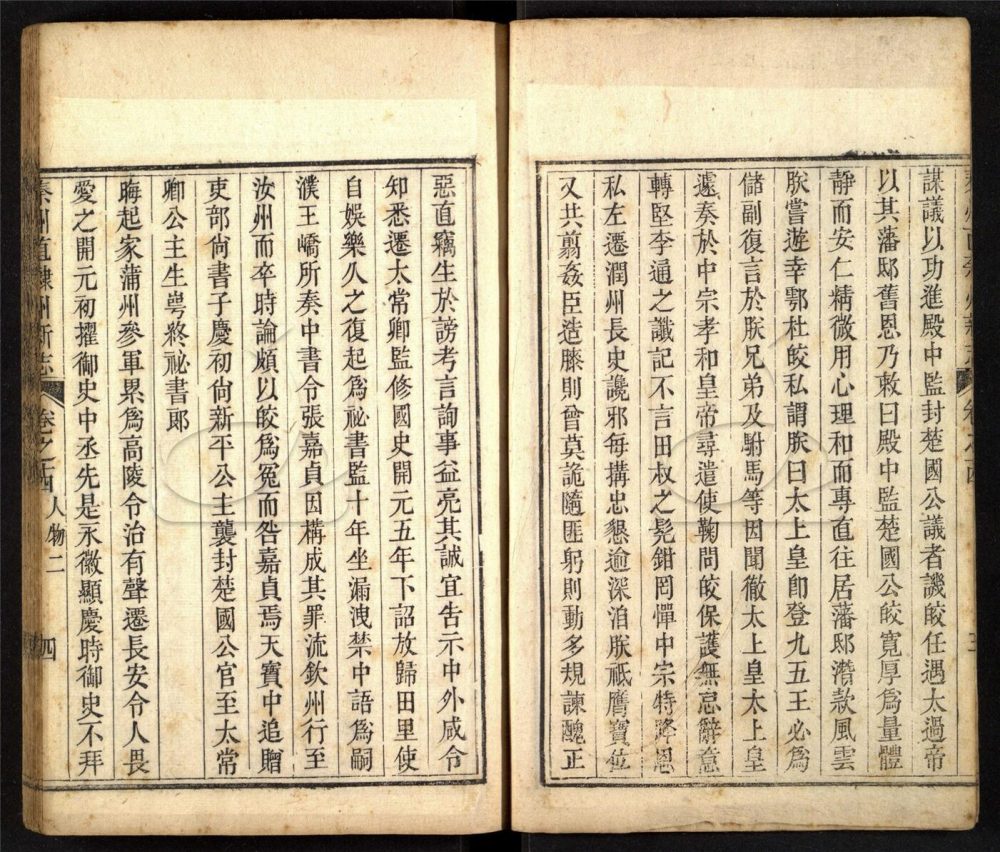 謀議以功進殿中監封楚國公議者譏皎任遇太過帝
以其藩邸舊恩乃敕曰殿中監楚國公皎寬厚爲量體
靜而安仁精微用心理和而專直往居藩邸潛款風雲
朕嘗遊幸鄠杜皎私謂朕曰太上皇卽登九五王必爲
儲副復言於朕兄弟及駙馬等因聞徹太上皇太上皇
遽奏於中宗孝和皇帝尋遣使鞠問皎保護無忌辭意
轉堅李通之讖記不言田叔之髡鉗罔憚中宗特降恩
私左遷潤州長史讒邪每搆忠懇逾深洎朕祗膺寶位
又共翦姦臣造膝則曾莫詭隨匪躬則動多規諫醜正
惡直竊生於謗考言詢事益亮其誠宜吿示中外咸令
知悉遷太常卿監修國史開元五年下詔放歸田里使
自娛樂久之復起爲祕書監十年坐漏洩禁中語爲嗣
濮王嶠所奏中書令張嘉貞因構成其罪流欽州行至
汝州而卒時論頗以皎爲冤而咎嘉貞焉天寶中追贈
吏部尙書子慶初尙新平公主襲封楚國公官至太常
卿公主生粤終祕書郞
晦起家蒲州參軍累爲高陵令治有聲遷長安令人畏
愛之開元初擢御史中丞先是永徽顯慶時御史不拜
秦州直隷州新志 卷之十四 人物二 四